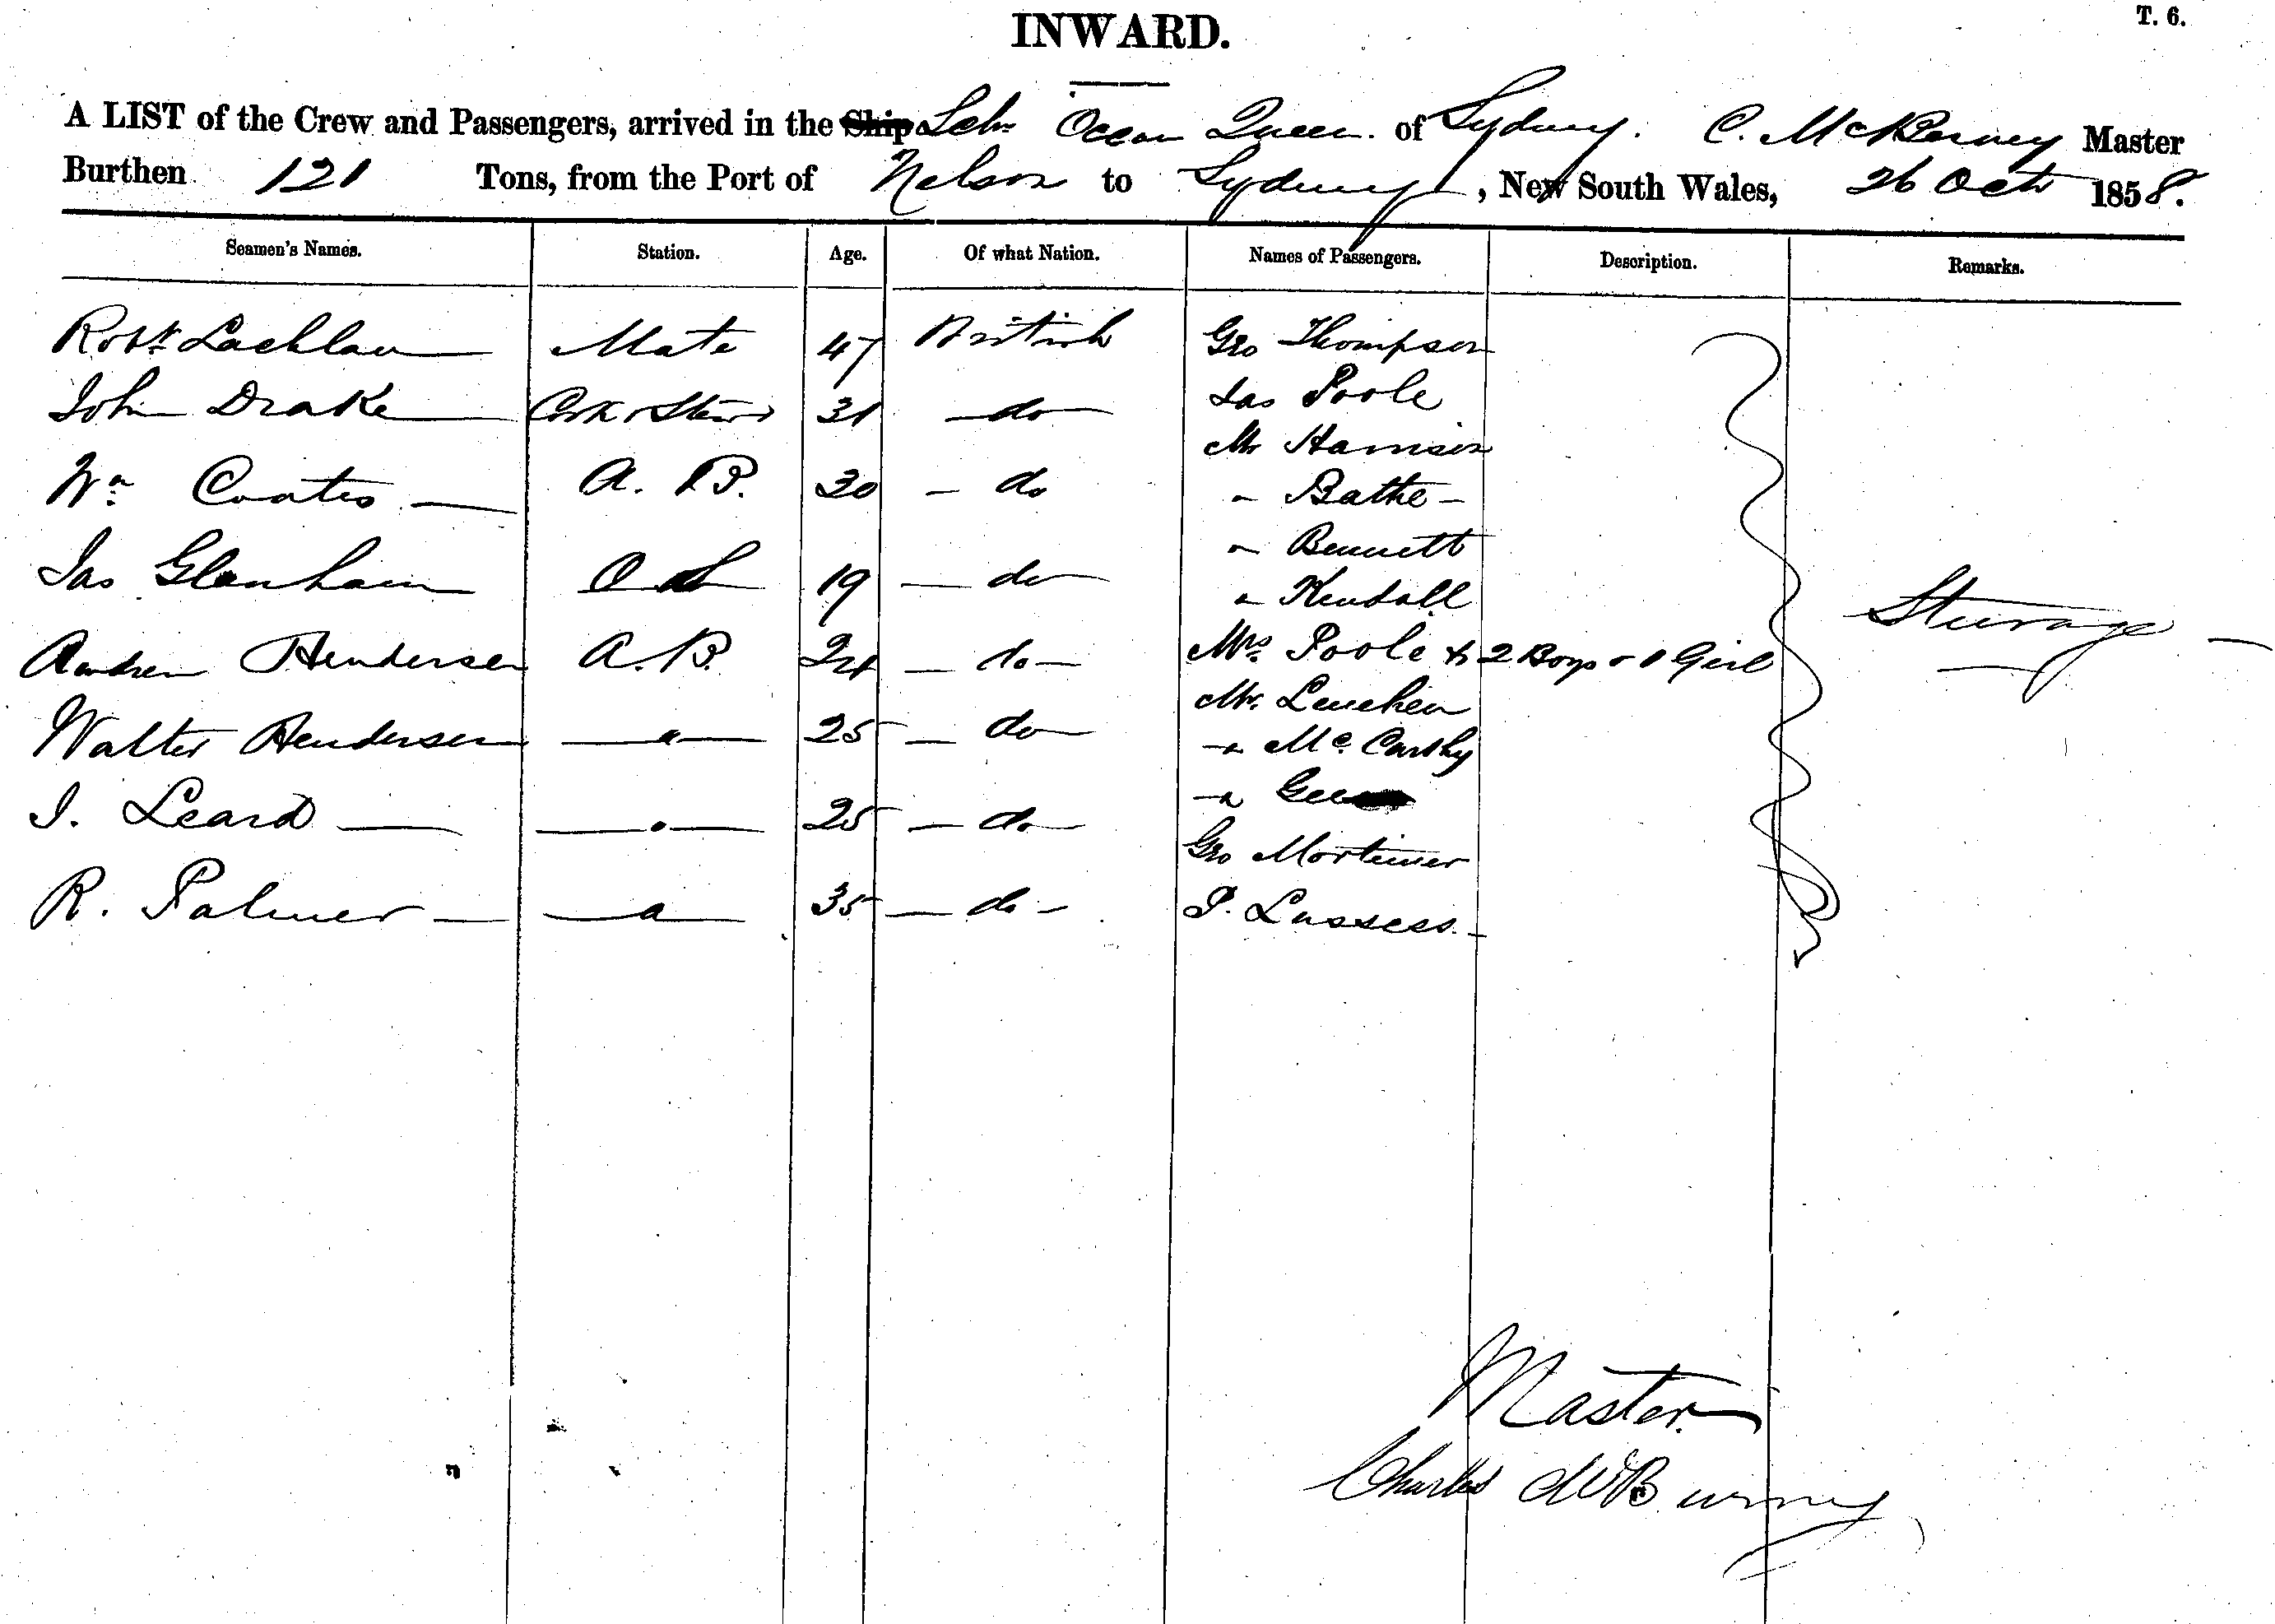 T. 6.
INWARD.
A LIST of the Crew and Passengers, arrived in the Ship Schr Ocean Queen. of Sydney. C. McBurney Master
Burthen 121 Tons, from the Port of Nelson to Sydney, New South Wales, 26 Octr 1858.
Seamen's Names. Station. Age. Of what Nation. Names of Passengers. Description. Remarks.
Robt Lachlan Mate 47 British Geo Thompson
John Drake Cook & Stewd 31 do Jas Poole
Mr Harrison
Wm Coates A. B. 30 do " Bathe
" Bennett
Jas Glenham O S 19 do " Kendall
Steerage
Andrew Henderson A. B. 24 do Mrs Poole & 2 Boys & 1 Girl
Mr.
Walter Henderson " 25 do " McCarthy
"
J. Leard " 25 do
Geo Mortimer
R. Palmer " 35 do P.
Master
Charles McBurney